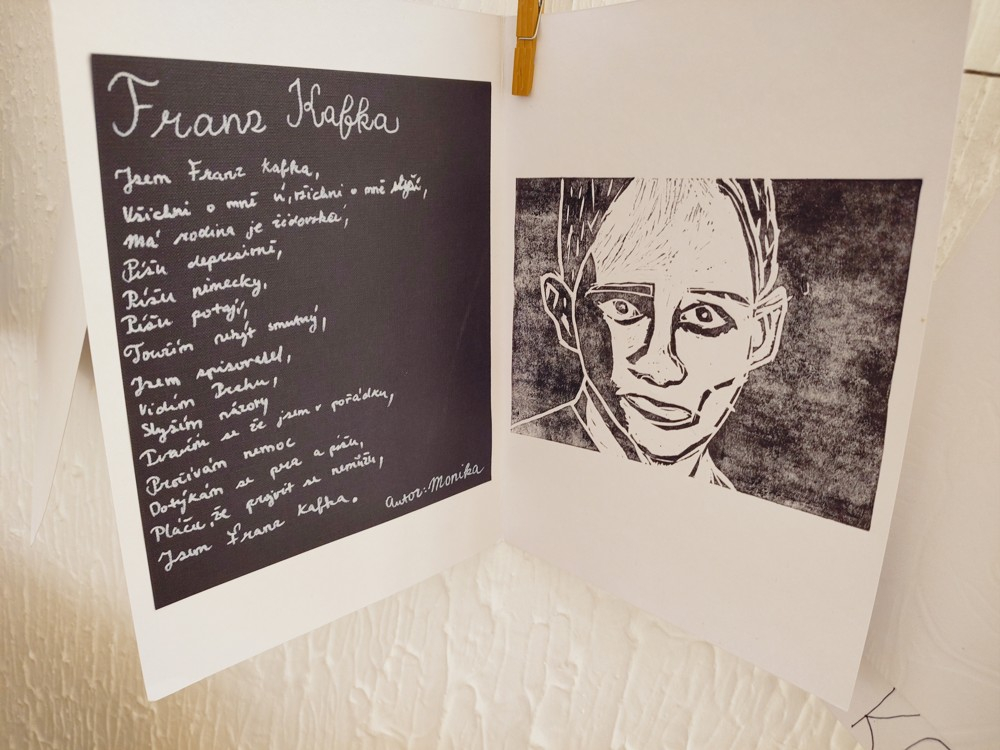 Franz Kafka
Jsem Franz Kafka,
Všichni o mně ví, všichni o mně slyší,
Má rodina je židovská,
Píšu depresivně,
Píšu německy,
Píšu potají,
Toužím nebýt smutný,
Jsem spisovatel,
Vidím Prahu,
Slyším názory
Tvářím se že jsem v pořádku,
Prožívám nemoc
Dotýkám se pera a píšu,
Pláču, že projevit se nemůžu,
Jsem Franz Kafka.
Autor: Monika
K